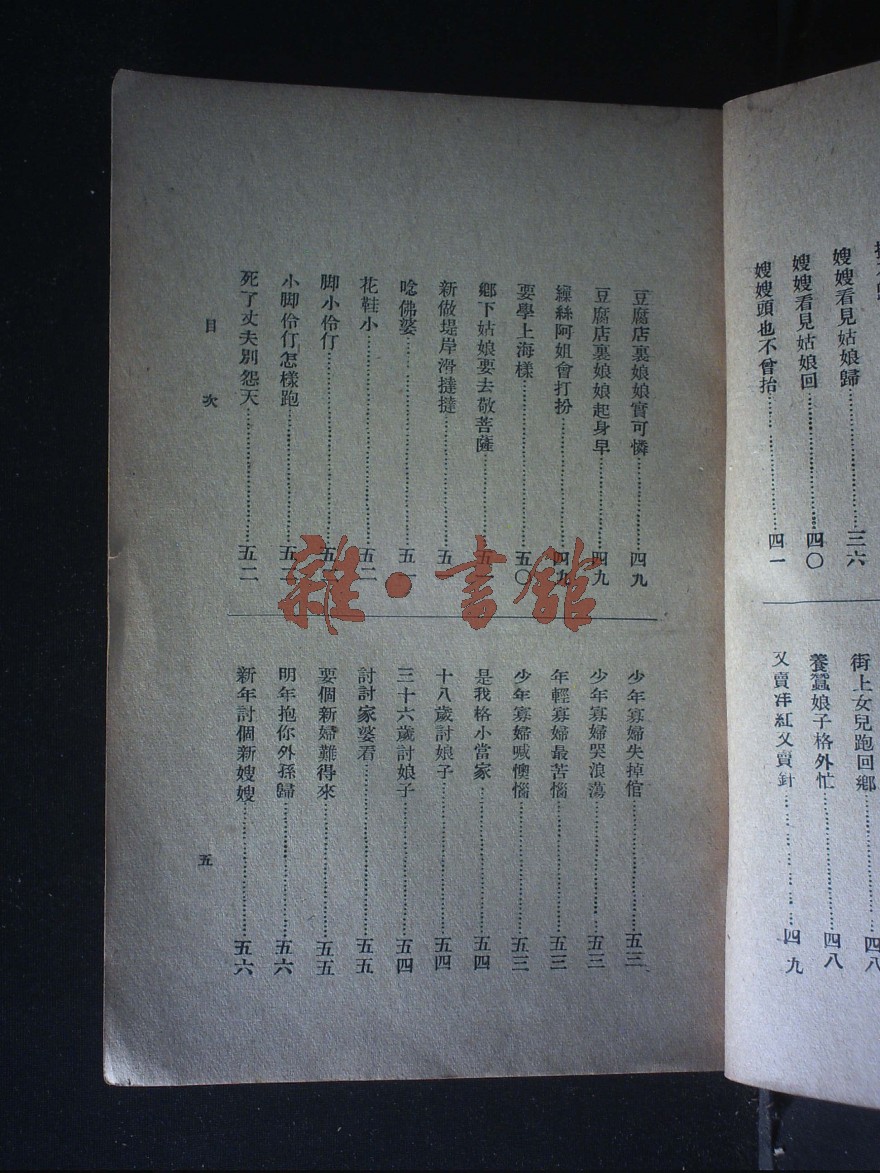 嫂嫂看見姑娘歸……三六
嫂嫂看見姑娘回……四〇
嫂嫂頭也不曾抬……四一
街上女兒跑回鄉……四八
養蠶娘子格外忙……四八
又賣洋紅又賣針……四九
豆腐店裏娘娘實可憐……四九
豆腐店裏娘娘起身早……四九
繅絲阿姐會打扮……四九
要學上海樣……五〇
鄉下姑娘要去敬菩薩……五一
新做堤岸滑撻撻……五
唸佛婆……五一
花鞋小……五二
脚小伶仃……五
小脚伶仃怎樣跑……五二
死了丈夫別怨天……五二
少年寡婦失掉倌……五三
少年寡婦哭浪蕩……五三
年輕寡婦最苦惱……五三
少年寡婦喊懊惱……五三
是我格小當家……五四
十八歲討娘子……五四
三十六歲討娘子……五四
討討家婆看……五五
要個新婦難得來……五五
明年抱你外孫歸……五六
新年討個新嫂嫂……五六
目次
五
雜·書館